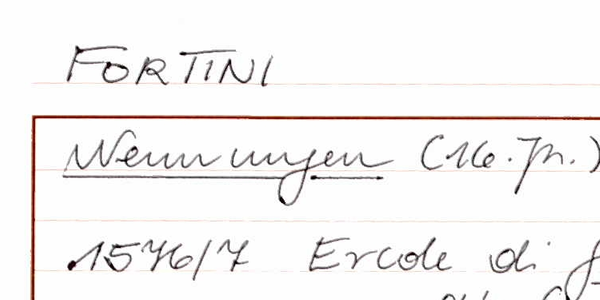 FORTINI
Nennungen (16. Jh.)
1576/7 Ercole di